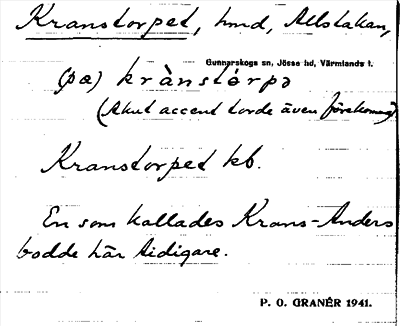 Kranstorpet, hmd, Allstakan,
Gunnarskogs sn, Jösse hd, Värmlands l.
(på) krànstórpə
(Akut accent torde även förekomma)
Kranstorpet kb.
En som kallades Krans-Anders
bodde här tidigare.
P. O. GRANÉR 1941.